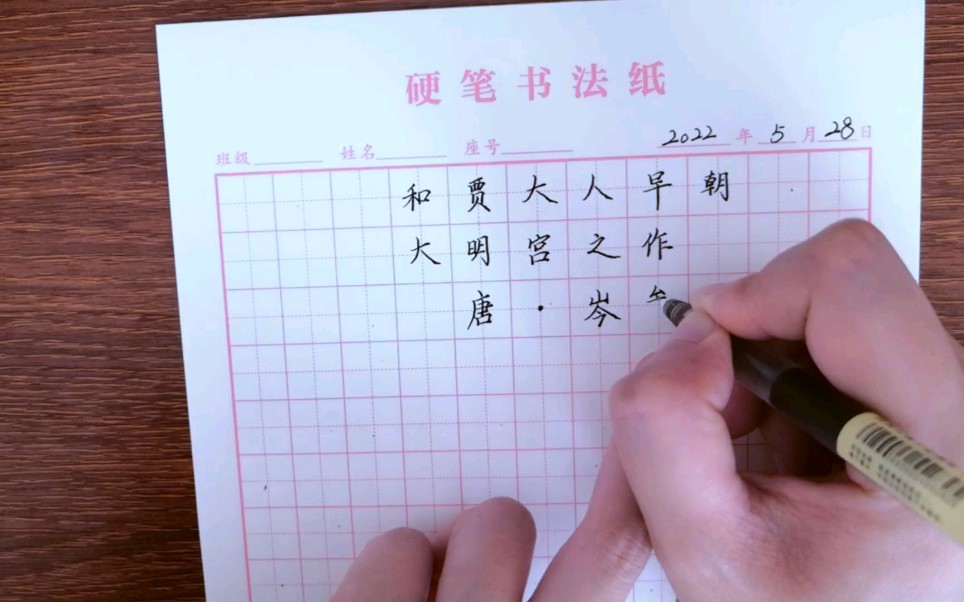 硬笔书法纸
班级 姓名 座号 2022 年 5 月 28 日
和贾大人早朝
大明宫之作
唐·岑